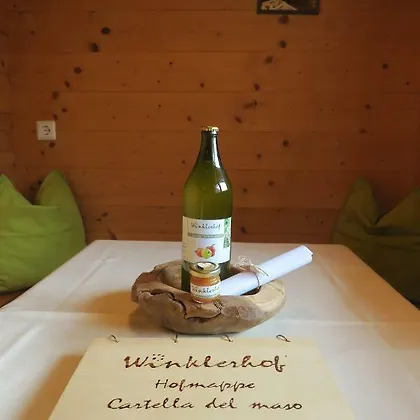 Winklerhof
Winklerhof
Winklerhof
Hofmappe
Cartella del maso